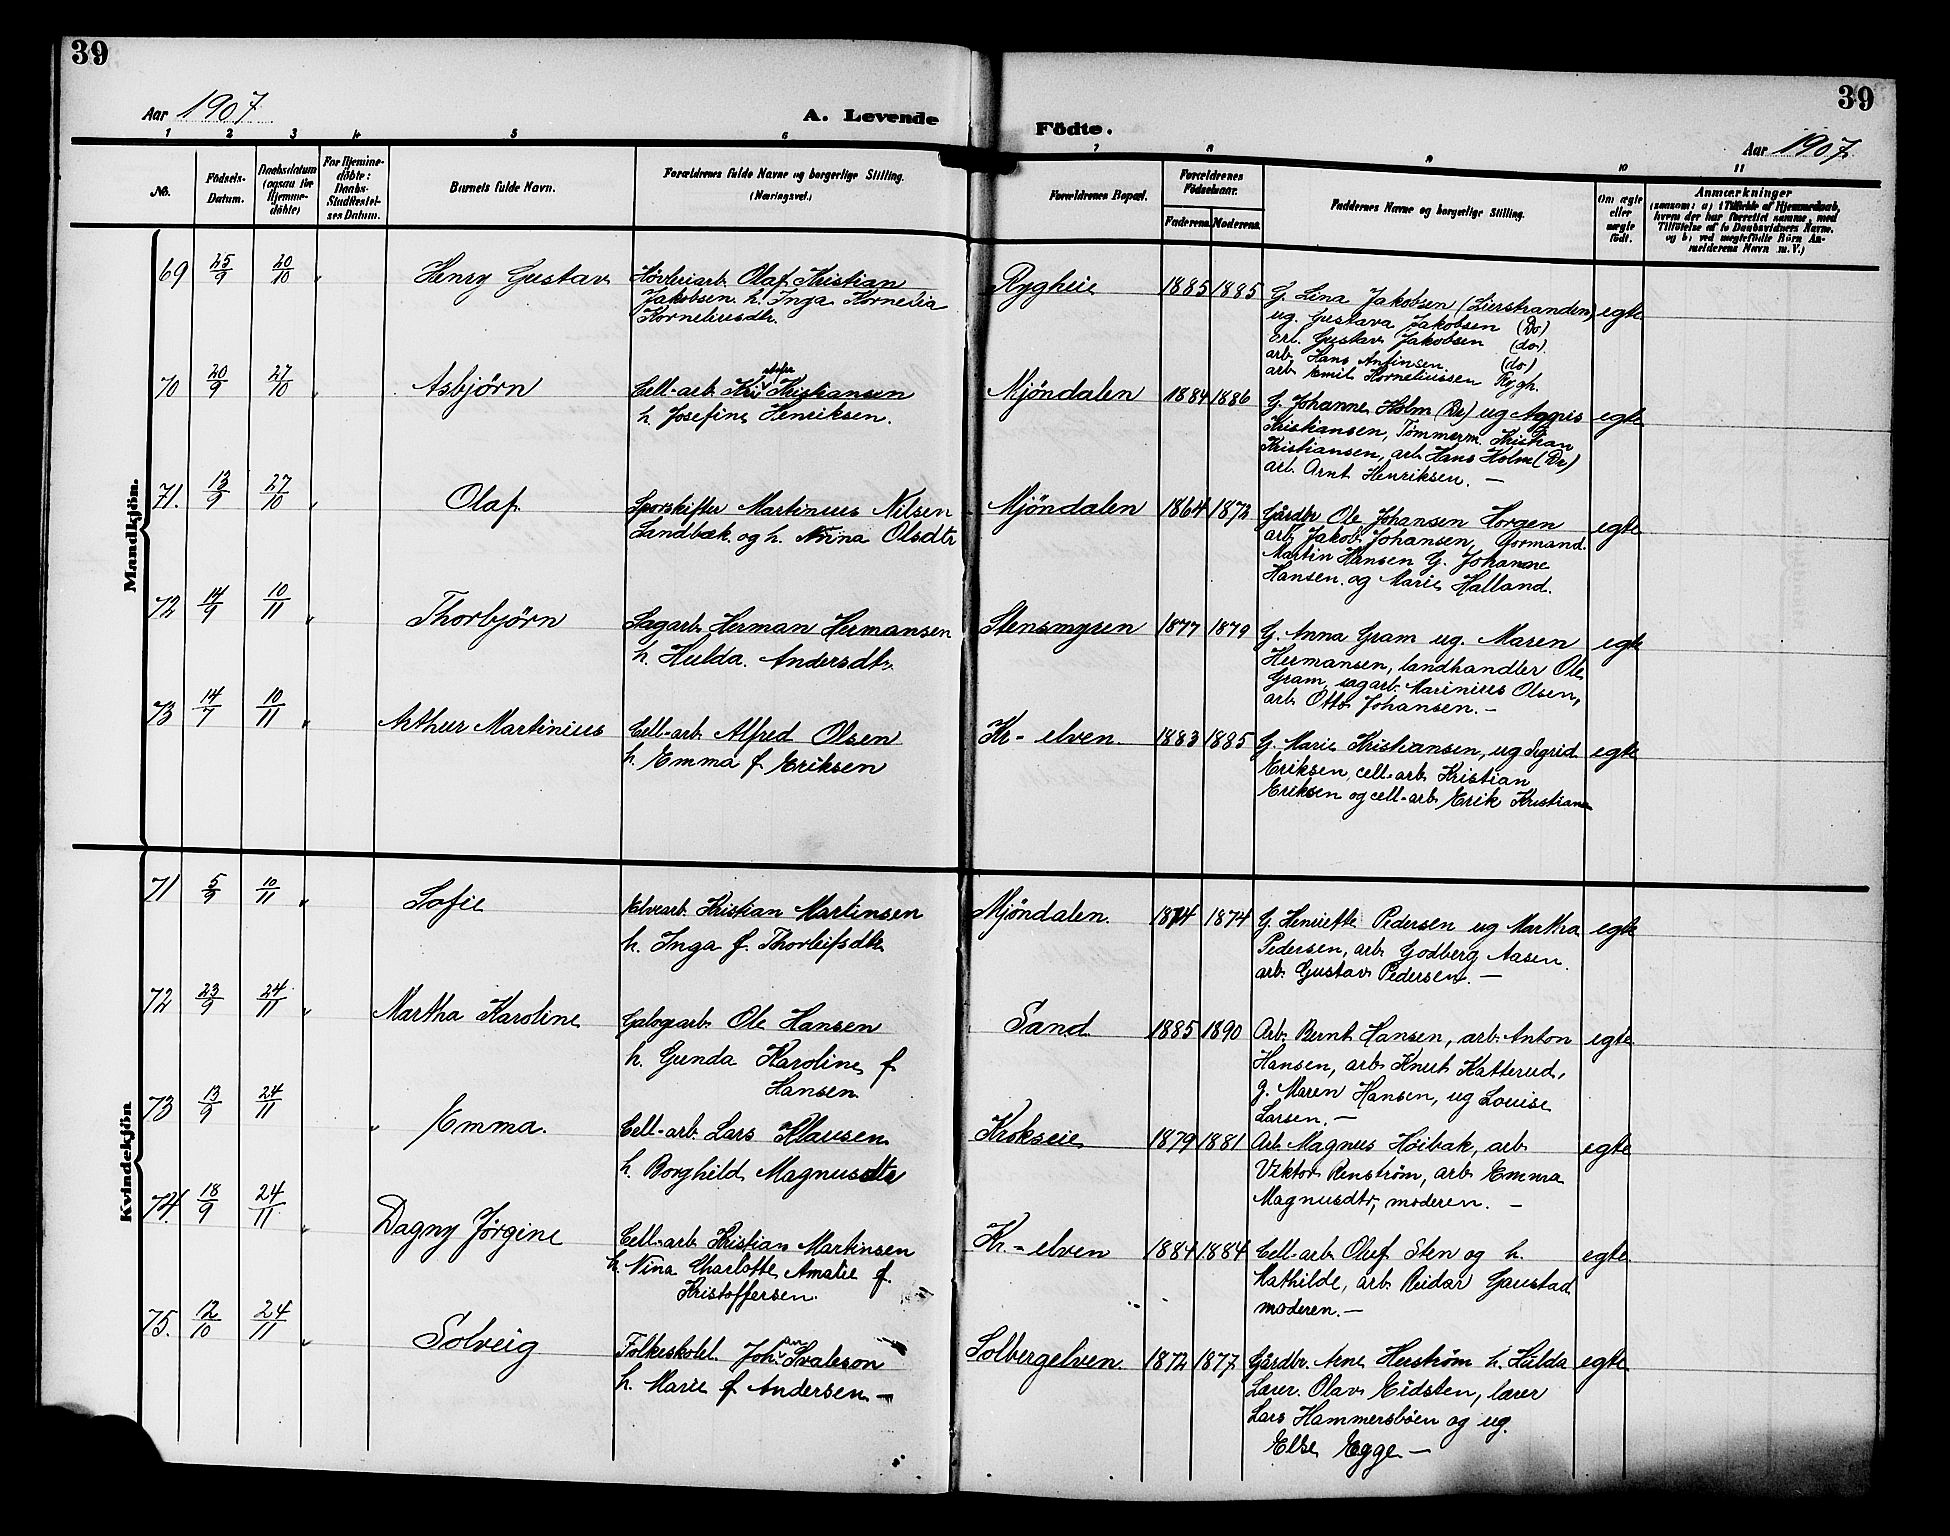 39
39
Aar 1907
A. Levende
Födte.
Aar 1907
1 2 3 4 5 6 7 8 9 10 11
No.
Födsels-
Datum.
Daabsdatum
(ogsaa for
Hjemme-
döbte)
For Hjemme-
döbte:
Daabs-
Stadfæstel-
ses Datum.
Barnets fulde Navn.
Forældrenes fulde Navne og borgerlige Stilling.
(Næringsvei.)
Forældrenes Bopæl.
Forældrenes
Födselsaar.
Faderens. Moderens.
Faddernes Navne og borgerlige Stilling.
Om ægte
eller
uægte
født.
Anmærkninger
(saasom: a) i Tilfælde af Hjemmedaab,
hvem der har forrettet samme, med
Tilföielse af to Daabsvidners Navne.
og b) ved uegtefödte Börn An-
melderens Navn m. V.)
Mandkjön.
69 25/9 20/10 " Henry Gustav
Høvleriarb. Olaf Kristian
Jakobsen h. Inga Kornelia
Korneliusdtr.
Rygheie 1885 1885
G. Lina Jakobsen (Lierstranden)
ug. Gustava Jakobsen (Do)
arb. Gustav Jakobsen (do)
arb. Hans Antinsen (do)
arb. Emil Korneliussen Rygh.
egte
70 20/9 27/10 " Asbjørn
Cell-arb. Kristian Kristiansen
h. Josefine Henriksen.
Mjöndalen 1884 1886
G. Johanne Holm (Dr) ug Agnes
Kristiansen, Tömmerm. Kristian
Kristiansen, arb. Hans Holm (Dr)
arb. Arnt Henriksen. —
egte
71. 13/9 27/10 " Olaf
Sporskifter Martinius Nilsen
Landbæk. og h. Nrina Olsdtr
Mjöndalen 1864 1872
Gårdbr Ole Johansen Horgen
arb. Jakob Johansen, formand
Martin Hansen G. Johanne
Hansen. og Marie Halland.
egte
72 14/9 10/11 " Thorbjörn
Sagarb. Herman Hermansen
h. Hulda. Andersdtr.
Stensmyren 1877 1879
G. Anna Gram ug. Maren
Hermansen, landhandler Ole
Gram, sagarb. Marinius Olsen,
arb. Otto Johansen. —
egte
73 14/7 10/11 " Arthur Martinius
Cell-arb. Alfred Olsen
h. Emma f Eriksen
Kr-elven. 1883 1885
G. Marie Kristiansen, ug Sigrid
Eriksen, cell-arb. Kristian
Eriksen og cell-arb. Erik Kristians
egte
Kvindekjön
71 5/9 10/11 " Sofie
Elvearb. Kristian Martinsen
h. Inga f. Thorleifsdtr
Mjöndalen. 1874 1874
G. Henriette Pedersen ug Martha
Pedersen, arb. Godberg Aasen.
arb. Gustav Pedersen. —
egte
72 23/9 24/11 " Martha Karoline
Galogearb. Ole Hansen
h. Gunda Karoline f
Hansen
Sand 1885 1890
Arb. Bernt Hansen, arb. Anton
Hansen, arb. Knut Katterud,
g. Maren Hansen, ug Louise
Larsen. —
egte
73 13/9 24/11 " Emma.
Cell-arb. Lars Klausen
h. Borghild Magnusdtr
Krokseie 1879 1881
Arb. Magnus Höibak, arb.
Viktor Renström, arb. Emma
Magnusdtr, moderen. —
egte
74. 18/9 24/11 " Dagny Jørgine
Cell-arb. Kristian Martinsen
h. Nina Charlotte Amalie f.
Kristoffersen.
Kr-elven 1884 1884
Cell-arb. Oluf Sten og h.
Mathilde, arb. Reidar Gaustad
moderen. —
egte
75. 12/10 24/11 " Solveig
Folkeskolel. Johan Svaleson
h. Marie f. Andersen —
Solbergelven. 1872 1877
Gårdbr. Arne Herström h. Hulda
Lærer. Olav Eidsten, lærer
Lars Hammersböen og ug.
Else Egge —
egte